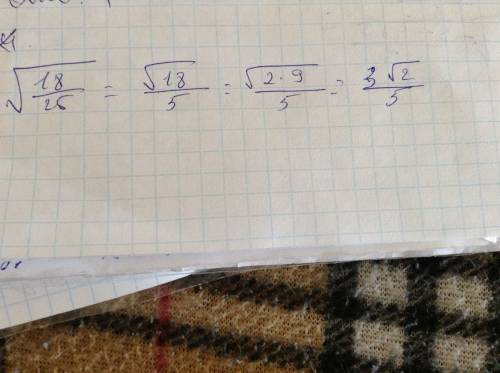 √(18/25) = √18/5 = √(2·9)/5 = 3√2/5